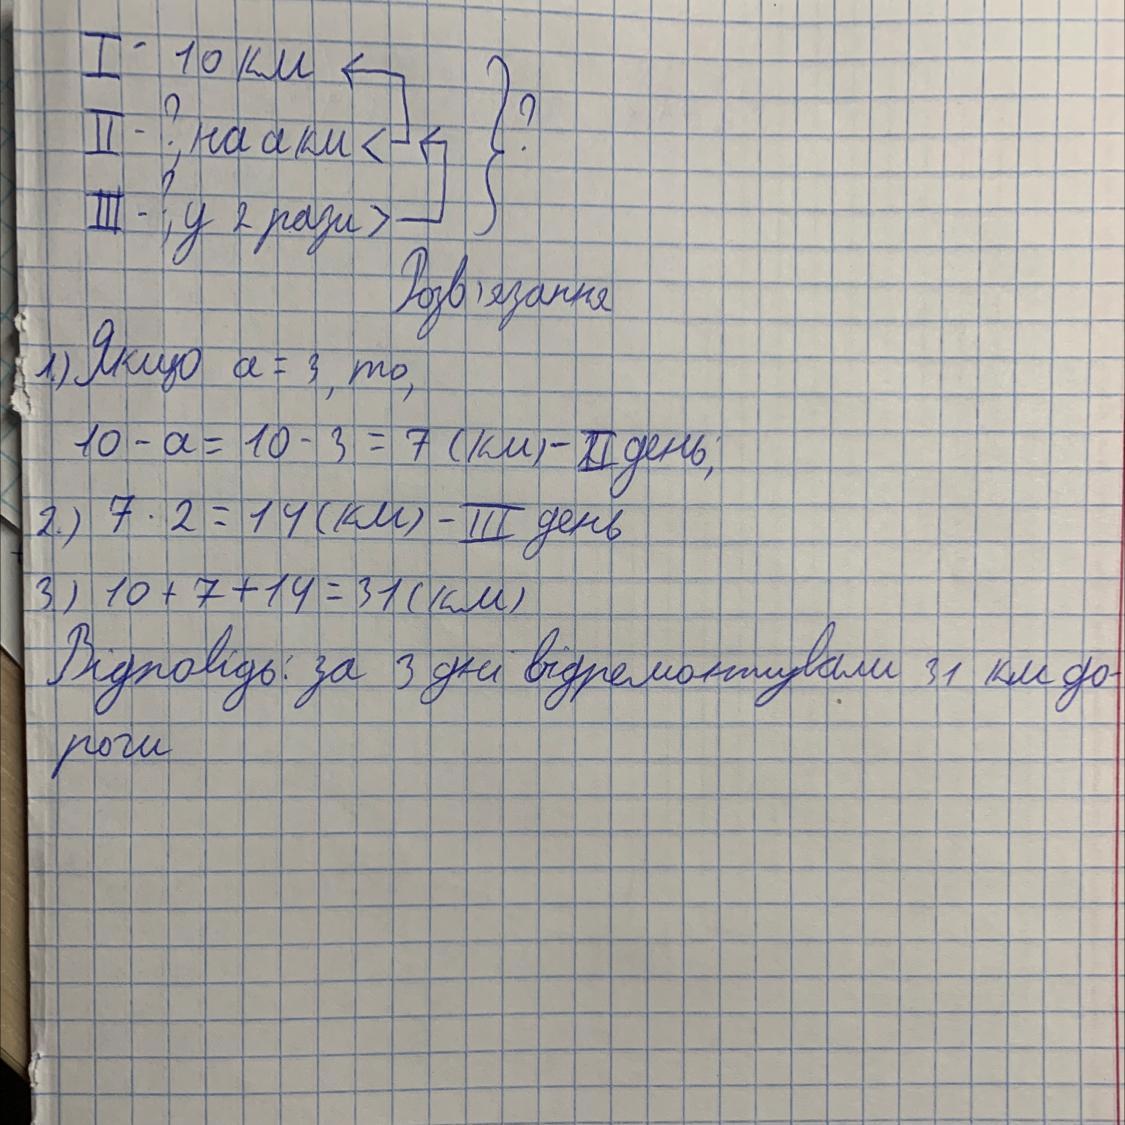 I - 10 км
II - ?, на а км <
III - ?, у 2 рази >
?
Розв'язання
1.) Якщо а = 3, то,
10 - а = 10 - 3 = 7 (км) - II день;
2.) 7 · 2 = 14 (км) - III день
3) 10 + 7 + 14 = 31 (км)
Відповідь: за 3 дні відремонтували 31 км до-
роги